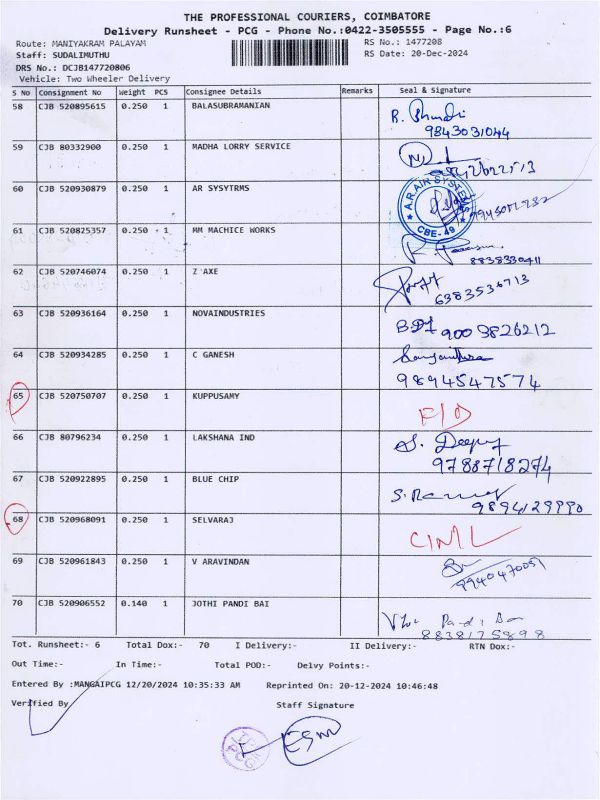 THE PROFESSIONAL COURIERS, COIMBATORE
Delivery Runsheet - PCG - Phone No.:0422-3505555 - Page No.:6
Route: MANIYAKRAM PALAYAM RS No.: 1477208
Staff: SUDALIMUTHU RS Date: 20-Dec-2024
DRS No.: DCJB147720806
Vehicle: Two Wheeler Delivery
S No Consignment No Weight PCS Consignee Details Remarks Seal & Signature
58 CJB 520895615 0.250 1 BALASUBRAMANIAN
9843031044
59 CJB 80332900 0.250 1 MADHA LORRY SERVICE
60 CJB 520930879 0.250 1 AR SYSYTRMS
A.R.AIR SYSTEMS
CBE-49
61 CJB 520825357 0.250 1 MM MACHICE WORKS
8838330411
62 CJB 520746074 0.250 1 Z AXE
6383536713
63 CJB 520936164 0.250 1 NOVAINDUSTRIES
9003826212
64 CJB 520934285 0.250 1 C GANESH
9894547574
65 CJB 520750707 0.250 1 KUPPUSAMY
66 CJB 80796234 0.250 1 LAKSHANA IND
9788718274
67 CJB 520922895 0.250 1 BLUE CHIP
9894129990
68 CJB 520968091 0.250 1 SELVARAJ
69 CJB 520961843 0.250 1 V ARAVINDAN
70 CJB 520906552 0.140 1 JOTHI PANDI BAI
8838175898
Tot. Runsheet:- 6 Total Dox:- 70 I Delivery:- II Delivery:- RTN Dox:-
Out Time:- In Time:- Total POD:- Delvy Points:-
Entered By :MANGAIPCG 12/20/2024 10:35:33 AM Reprinted On: 20-12-2024 10:46:48
Verified By Staff Signature